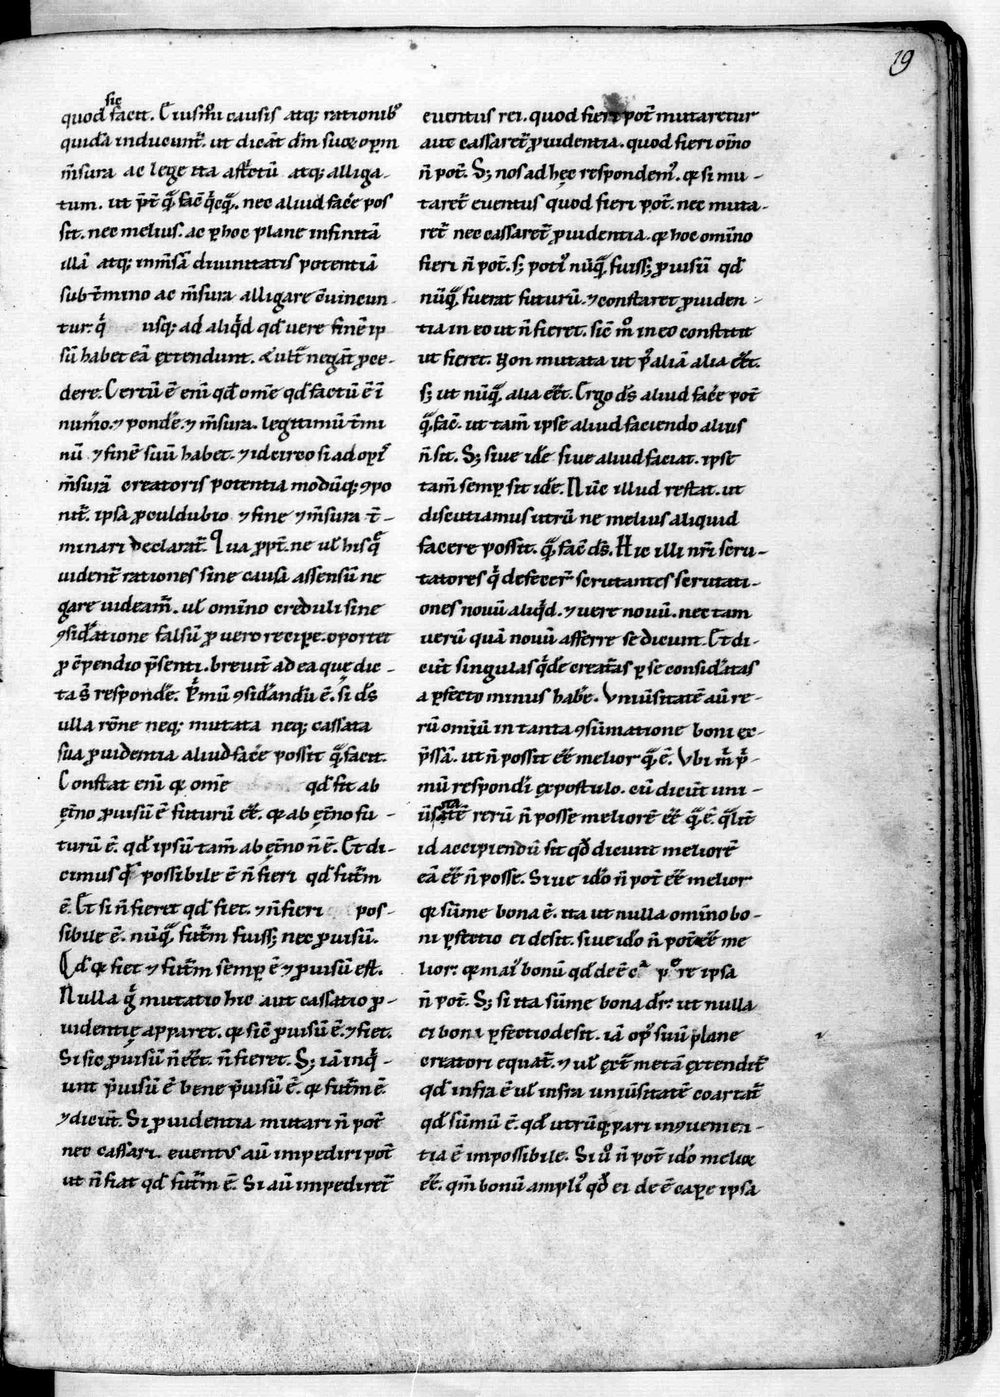 19
sic
quod facit. Ciusm̄i causis atq; rationib᷒
quidā inducunt᷑. ut dicāt dm̄ suoꝝ oꝑm
m̄sura ac lege ita astͥctū atq; alliga-
tum. ut p̄t q̄ facͥ q̄cq̄. nec aliud facͤe pos
sit. nec melius. ac ꝑ hoc plane infinitā
illā atq; inm̄sā diuinitatis potentiā
sub t̄mino ac m̄sura alligare ↄuincun-
tur. q̇ usq; ad aliq̇d qd̓ uere finē ip
sū habet eā extendunt. & ult᷑ negāt ꝓce-
dere. Certū ē enī qd̓ om̄e qd̓ factū ē ī
num̓o. ⁊ pondͤe. ⁊ m̄sura. legitimū t̄mi
nū ⁊ finē suū habet. ⁊ idcirco si ad oꝑis
m̄surā creatoris potentia modūq; ↄpo
nit᷑. ipsa ꝓculdubio ⁊ fine ⁊ m̄sura t̄-
minari declarat᷑. Qua ꝓpt᷑. ne ul̓ his q̄
uident᷑ rationes sine causa assensū ne
gare uideam᷑. ul̓ omīno creduli sine
ↄsid̓atione falsū ꝓ uero recipe. oportet
ꝓ cōpendio p̄senti. breuit᷑ ad ea que dic-
ta s̄ respondͤe. P̓mū ↄsid̓andū ē. si d̄s
ulla rōne neq; mutata neq; cassata
sua ꝓuidentia aliud facͤe possit q̄ facit.
Constat enī qꝫ om̄e qd̓ fit ab
ęt̄no ꝓuisū ē futurū eē. qꝫ ab ęt̄no fu-
turū ē. qd̓ ipsū tam̄ ab ęt̄no n̄ ē. Et di-
cimus qd̓ possibile ē n̄ fieri qd̓ fut᷑m
ē. Et si n̄ fieret qd̓ fiet. ⁊ n̄ fieri pos-
sibile ē. nūq̄ fut᷑m fuiss; nec ꝓuisū.
Qd̓ qꝫ fiet ⁊ fut᷑m semꝑ ē ⁊ ꝓuisū est.
Nulla g̊ mutatio hic aut cassatio ꝓ-
uidentię apparet. qꝫ sic̄ ꝓuisū ē. ⁊ fiet.
Si sic ꝓuisū n̄ eēt. n̄ fieret. S; iā inq̇-
unt ꝓuisū ē bene ꝓuisū ē. qꝫ fut᷑m ē
⁊ dicūt. Si ꝓuidentia mutari n̄ pot᷑
nec cassari. euentus aū impediri pot᷑
ut n̄ fiat qd̓ fut᷑m ē. Si aū impediret᷑
euentus rei. quod fieri pot᷑ mutaretur
aut cassaret᷑ ꝓuidentia. quod fieri oīno
n̄ pot᷑. S; nos ad hęc respondem᷒. qꝫ si mu-
taret᷑ euentus quod fieri pot᷑. nec muta-
ret᷑ nec cassaret᷑ ꝓuidentia. qꝫ hoc omīno
fieri n̄ pot᷑. s; poti᷒ nūq̄ fuiss; ꝓuisū qd̓
nūq̄ fuerat futurū. ⁊ constaret ꝓuiden-
tia in eo ut n̄ fieret. sic̄ m̊ in eo constitit
ut fieret. Non mutata ut p᷒ aliā alia eēt.
s; ut nūq̄ alia eēt. Ergo d̄s aliud facͤe pot᷑
q̄ fac̄. ut tam̄ ipse aliud faciendo alius
n̄ sit. S; siue idē siue aliud faciat. ipse
tam̄ semꝑ sit idē. Nūc illud restat. ut
discutiamus utrū ne melius aliquid
facere possit. q̄ fac̄ d̄s. Hic illi nr̄i scru-
tatores q̇ defecer̄ scrutantes scrutati-
ones nouū aliq̇d. ⁊ uere nouū. nec tam
uerū quā nouū afferre se dicunt. Et di-
cūt singulas q̇dē creat᷑as ꝑ se consid̓atas
a ꝑfecto minus habͤe. Vniūsitatē aū re-
rū omiū in tanta ↄsūmatione boni ex-
p̄ssā. ut n̄ possit eē melior q̄ ē. Vbi m̊ p̓-
mū responderi expostulo. cū dicūt uni-
ūsitatē rerū n̄ posse meliorē eē q̄ ē. q̄lit᷑
id accipiendū sit qd̓ dicunt meliorē
eā eē n̄ posse. Siue id̓o n̄ pot᷑ eē melior
qꝫ sūme bona ē. ita ut nulla omīno bo-
ni ꝑfectio ei desit. siue id̓o n̄ pot᷑ eē me
lior: qꝫ mai᷒ bonū qd̓ deē caꝑe ipsa
n̄ pot᷑. S; si ita sūme bona dr̄: ut nulla
ei boni ꝑfectio desit. iā op᷒ suū plane
creatori equat᷑. ⁊ ul̓ ext᷑ metā extendit᷑
qd̓ infra ē ul̓ infra uniūsitatē coartat᷑
qd̓ sūmū ē. qd̓ utrūq; pari inↄuenien-
tia ē impossibile. Si ů n̄ pot᷑ id̓o melior
eē. qm̄ bonū ampli᷒ qd̓ ei deē caꝑe ipsa